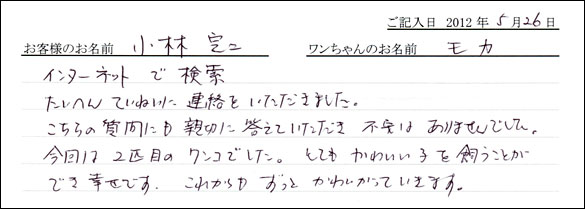 ご記入日 2012 年 5 月 26 日
お客様のお名前 小林 定二 ワンちゃんのお名前 モカ
インターネットで検索
たいへんていねいに連絡をいただきました。
こちらの質問にも親切に答えていただき不安はありませんでした。
今回は2匹目のワンコでした。とてもかわいい子を飼うことが
でき幸せです。これからもずっとかわいがっていきます。